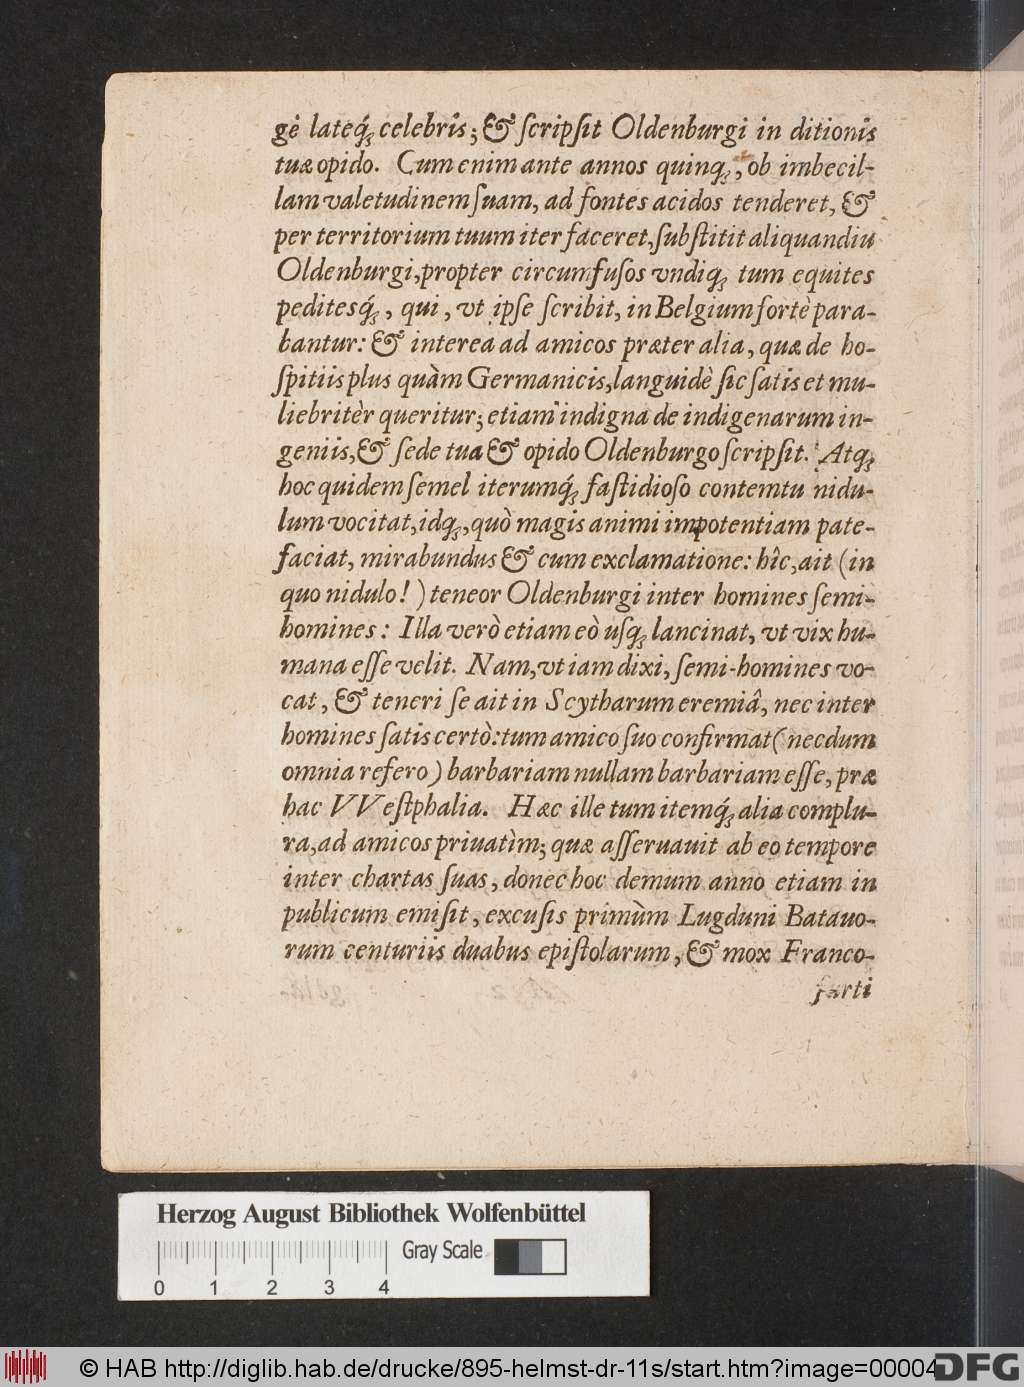 gè lateq́ꝫ celebris; & ſcripſit Oldenburgi in ditionis
tuæ opido. Cum enim ante annos quinqꝫ, ob imbecil-
lam valetudinem ſuam, ad fontes acidos tenderet, &
per territorium tuum iter faceret, ſubſtitit aliquandiu
Oldenburgi, propter circumfuſos vndiqꝫ tum equites
peditesq́ꝫ, qui, vt ipſe ſcribit, in Belgium fortè para-
bantur: & interea ad amicos præter alia, quæ de ho-
ſpitiis plus quàm Germanicis, languidè ſic ſatis et mu-
liebritèr queritur; etiam indigna de indigenarum in-
geniis, & ſede tua & opido Oldenburgo ſcripſit. Atqꝫ
hoc quidem ſemel iterumq́ꝫ faſtidioſo contemtu nidu-
lum vocitat, idqꝫ, quò magis animi impotentiam pate-
faciat, mirabundus & cum exclamatione: hîc, ait (in
quo nidulo!) teneor Oldenburgi inter homines ſemi-
homines: Illa verò etiam eò uſqꝫ lancinat, vt vix hu-
mana eſſe velit. Nam, vt iam dixi, ſemi-homines vo-
cat, & teneri ſe ait in Scytharum eremiâ, nec inter
homines ſatis certò: tum amico ſuo confirmat (necdum
omnia refero) barbariam nullam barbariam eſſe, præ
hac VVeſtphalia. Hæc ille tum itemq́ꝫ alia complu-
ra, ad amicos priuatìm; quæ aſſeruauit ab eo tempore
inter chartas ſuas, donec hoc demum anno etiam in
publicum emiſit, excuſis primùm Lugduni Batauo-
rum centuriis duabus epiſtolarum, & mox Franco-
furti
Herzog August Bibliothek Wolfenbüttel
Gray Scale
0 1 2 3 4
© HAB http://diglib.hab.de/drucke/895-helmst-dr-11s/start.htm?image=00004
DFG